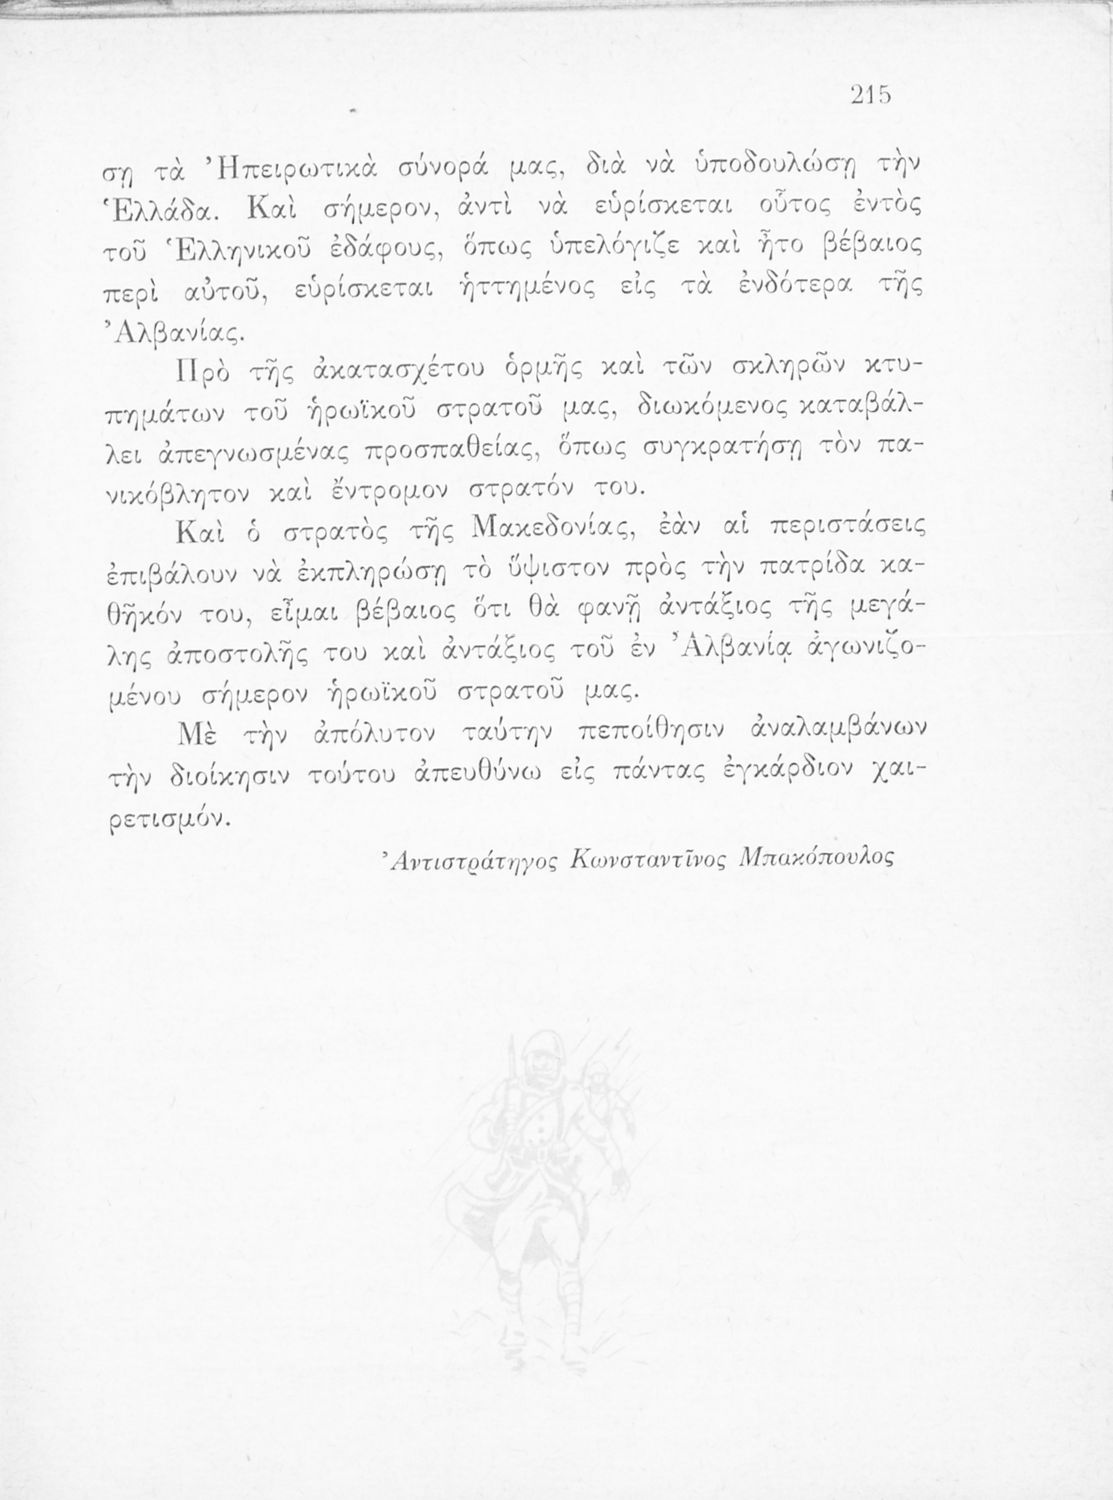 215
ση τὰ Ἠπειρωτικὰ σύνορά μας, διὰ νὰ ὑποδουλώσῃ τὴν
Ἑλλάδα. Καὶ σήμερον, ἀντὶ νὰ εὑρίσκεται οὗτος ἐντὸς
τοῦ Ἑλληνικοῦ ἐδάφους, ὅπως ὑπελόγιζε καὶ ἦτο βέβαιος
περὶ αὐτοῦ, εὑρίσκεται ἡττημένος εἰς τὰ ἐνδότερα τῆς
Ἀλβανίας.
Πρὸ τῆς ἀκατασχέτου ὁρμῆς καὶ τῶν σκληρῶν κτυ-
πημάτων τοῦ ἡρωϊκοῦ στρατοῦ μας, διωκόμενος καταβάλ-
λει ἀπεγνωσμένας προσπαθείας, ὅπως συγκρατήσῃ τὸν πα-
νικόβλητον καὶ ἔντρομον στρατόν του.
Καὶ ὁ στρατὸς τῆς Μακεδονίας, ἐὰν αἱ περιστάσεις
ἐπιβάλουν νὰ ἐκπληρώσῃ τὸ ὕψιστον πρὸς τὴν πατρίδα κα-
θῆκόν του, εἶμαι βέβαιος ὅτι θὰ φανῇ ἀντάξιος τῆς μεγά-
λης ἀποστολῆς του καὶ ἀντάξιος τοῦ ἐν Ἀλβανίᾳ ἀγωνιζο-
μένου σήμερον ἡρωϊκοῦ στρατοῦ μας.
Μὲ τὴν ἀπόλυτον ταύτην πεποίθησιν ἀναλαμβάνων
τὴν διοίκησιν τούτου ἀπευθύνω εἰς πάντας ἐγκάρδιον χαι-
ρετισμόν.
Ἀντιστράτηγος Κωνσταντῖνος Μπακόπουλος